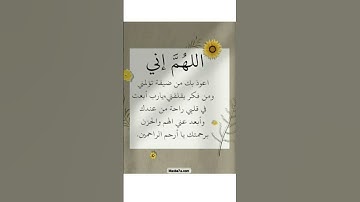 اللهُمَّ إني
اعوذ بك من ضيقة تؤلمني
ومن فكر يقلقني يارب أبعث
في قلبي راحة من عندك
وأبعد عني الهم والحزن
برحمتك يا أرحم الراحمين